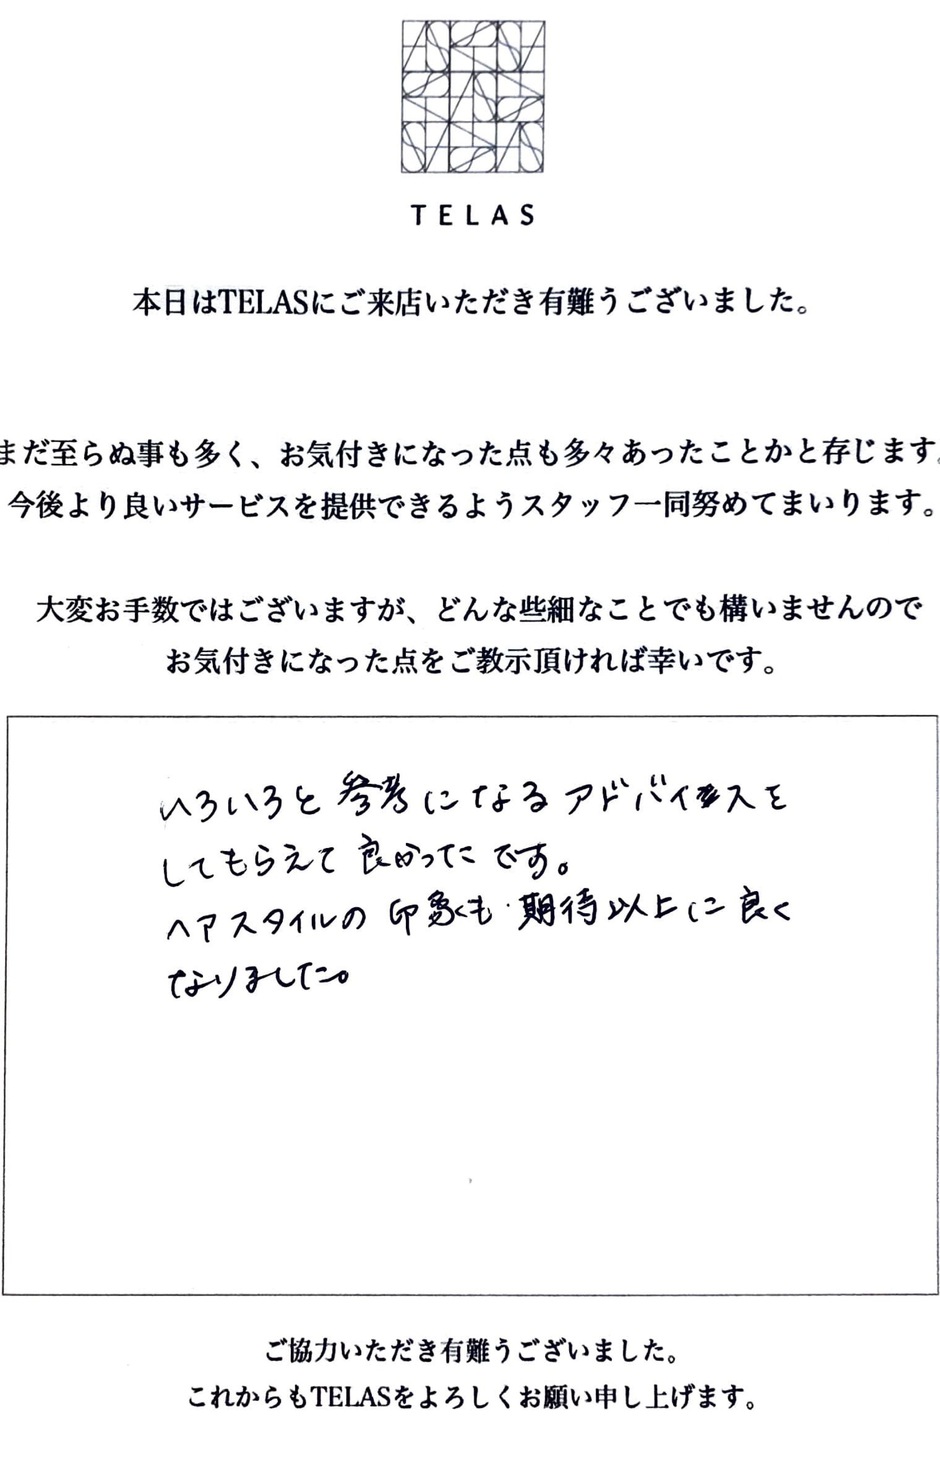 TELAS
本日はTELASにご来店いただき有難うございました。
まだ至らぬ事も多く、お気付きになった点も多々あったことかと存じます。
今後より良いサービスを提供できるようスタッフ一同努めてまいります。
大変お手数ではございますが、どんな些細なことでも構いませんので
お気付きになった点をご教示頂ければ幸いです。
いろいろと参考になるアドバイスを
してもらえて良かったです。
ヘアスタイルの印象も期待以上に良く
なりました。
ご協力いただき有難うございました。
これからもTELASをよろしくお願い申し上げます。